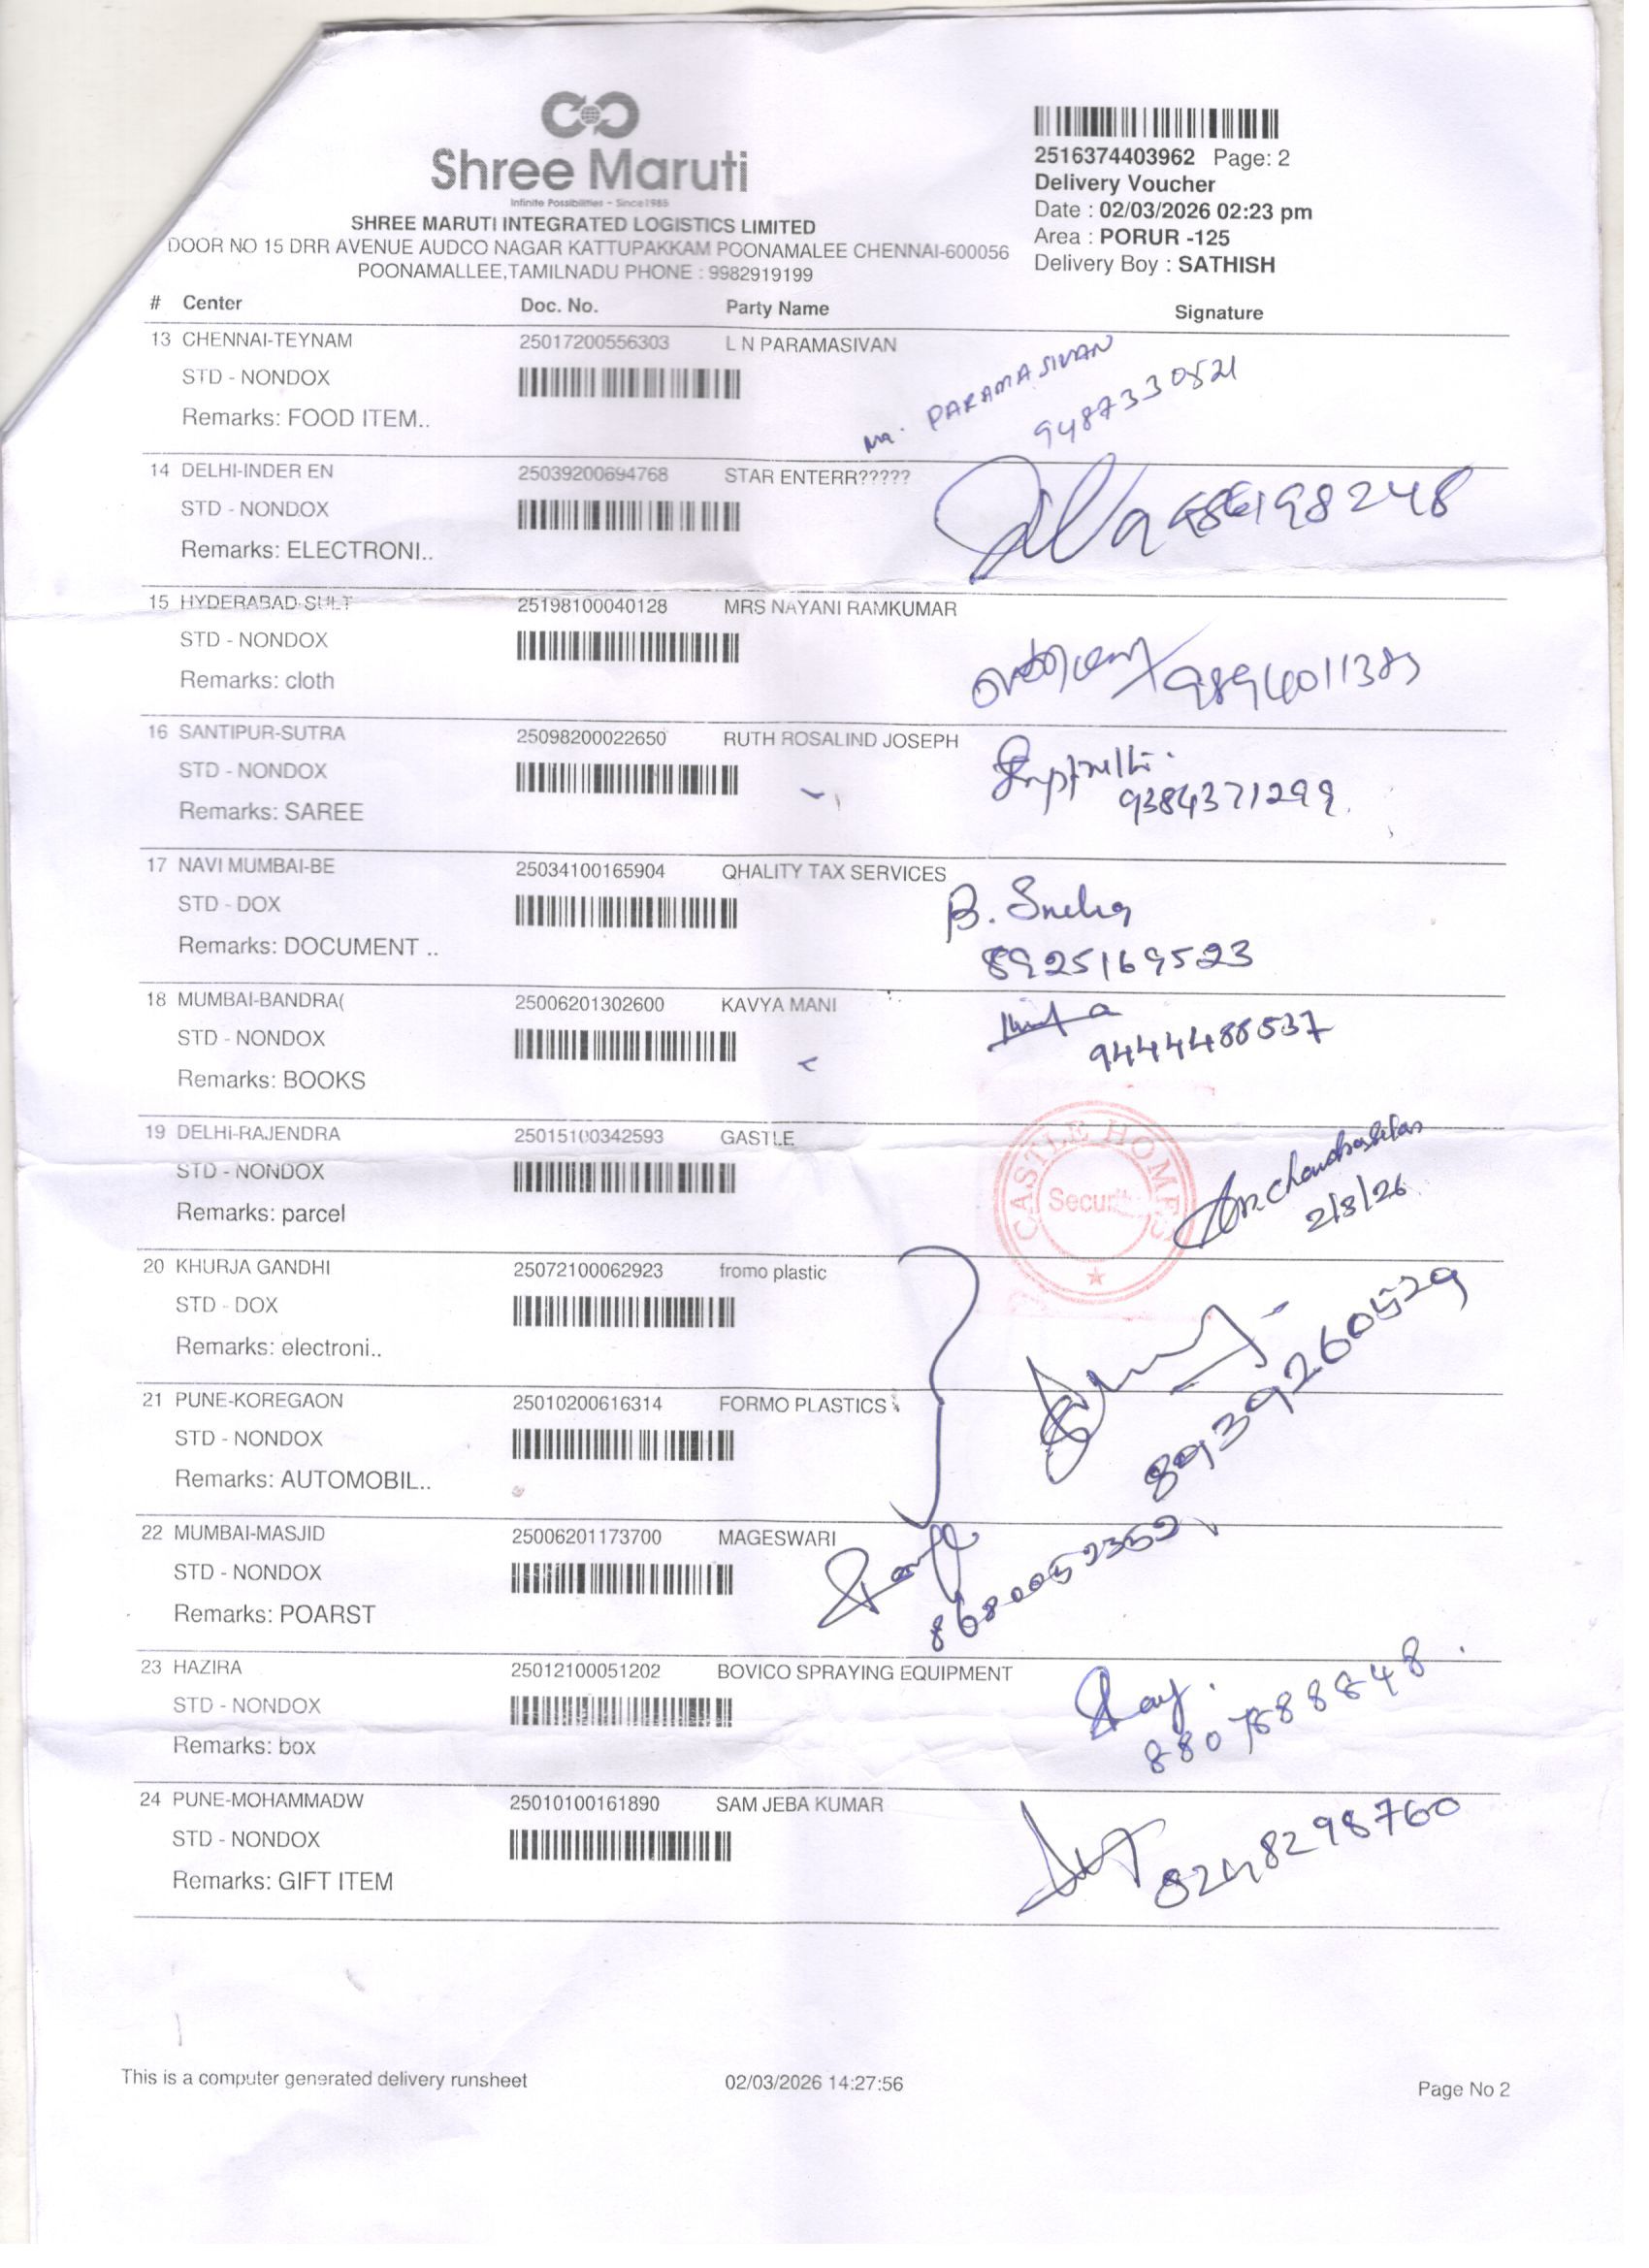 Shree Maruti
Infinite Possibilities - Since1985
SHREE MARUTI INTEGRATED LOGISTICS LIMITED
DOOR NO 15 DRR AVENUE AUDCO NAGAR KATTUPAKKAM POONAMALEE CHENNAI-600056
POONAMALLEE,TAMILNADU PHONE : 9982919199
2516374403962 Page: 2
Delivery Voucher
Date : 02/03/2026 02:23 pm
Area : PORUR -125
Delivery Boy : SATHISH
# Center Doc. No. Party Name Signature
13 CHENNAI-TEYNAM 25017200556303 L N PARAMASIVAN
STD - NONDOX
PARAMASIVAN
9487330521
Remarks: FOOD ITEM..
14 DELHI-INDER EN 25039200694768 STAR ENTERR?????
STD - NONDOX
Remarks: ELECTRONI..
15 HYDERABAD-SULT 25198100040128 MRS NAYANI RAMKUMAR
STD - NONDOX
Remarks: cloth
16 SANTIPUR-SUTRA 25098200022650 RUTH ROSALIND JOSEPH
STD - NONDOX
9384371299
Remarks: SAREE
17 NAVI MUMBAI-BE 25034100165904 QHALITY TAX SERVICES
STD - DOX B. Sneha
Remarks: DOCUMENT .. 8925169523
18 MUMBAI-BANDRA( 25006201302600 KAVYA MANI
STD - NONDOX 9444488537
Remarks: BOOKS
19 DELHI-RAJENDRA 25015100342593 GASTLE
STD - NONDOX
CASTLE HOMES
Security
Chandrasekar
2/3/26
Remarks: parcel
20 KHURJA GANDHI 25072100062923 fromo plastic
STD - DOX
Remarks: electroni..
8939260529
21 PUNE-KOREGAON 25010200616314 FORMO PLASTICS
STD - NONDOX
Remarks: AUTOMOBIL..
22 MUMBAI-MASJID 25006201173700 MAGESWARI
STD - NONDOX
8680052352
Remarks: POARST
23 HAZIRA 25012100051202 BOVICO SPRAYING EQUIPMENT
STD - NONDOX
Remarks: box
24 PUNE-MOHAMMADW 25010100161890 SAM JEBA KUMAR
STD - NONDOX
Remarks: GIFT ITEM
This is a computer generated delivery runsheet 02/03/2026 14:27:56 Page No 2